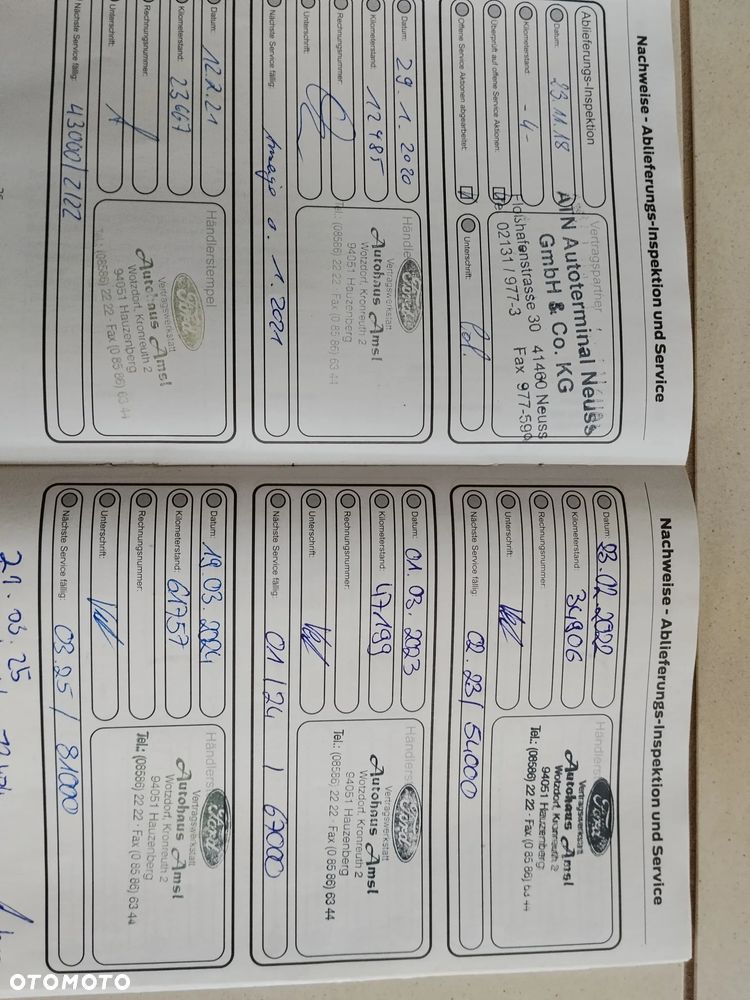 Nachweise - Ablieferungs-Inspektion und Service
Ablieferungs-Inspektion
Datum: 23.11.18
Kilometerstand: - 4 -
Überprüft auf offene Service Aktionen:
Offene Service Aktionen abgearbeitet:
Vertragspartner
ATN Autoterminal Neuss
GmbH & Co. KG
Floßhafenstrasse 30 41460 Neuss
02131 / 977-3 Fax 977-590
Unterschrift:
Datum: 29.1.2020
Kilometerstand: 12485
Rechnungsnummer:
Unterschrift:
Nächste Service fällig: 1.2021
Händle
Ford
Vertragswerkstatt
Autohaus Amsl
Wotzdorf, Kronreuth 2
94051 Hauzenberg
Tel.: (08586) 22 22 · Fax (0 85 86) 63 44
Datum: 12.2.21
Kilometerstand: 23667
Rechnungsnummer:
Unterschrift:
Nächste Service fällig: 43000/2/22
Händlerstempel
Ford
Vertragswerkstatt
Autohaus Amsl
Wotzdorf, Kronreuth 2
94051 Hauzenberg
Tel.: (08586) 22 22 · Fax (0 85 86) 63 44
Nachweise - Ablieferungs-Inspektion und Service
Datum: 23.02.2022
Kilometerstand: 34906
Rechnungsnummer:
Unterschrift:
Nächste Service fällig: 02.23/54000
Händlers
Ford
Vertragswerkstatt
Autohaus Amsl
Wotzdorf, Kronreuth 2
94051 Hauzenberg
Tel.: (08586) 22 22 · Fax (0 85 86) 63 44
Datum: 01.03.2023
Kilometerstand: 47199
Rechnungsnummer:
Unterschrift:
Nächste Service fällig: 01/24 / 67000
Händlers
Ford
Vertragswerkstatt
Autohaus Amsl
Wotzdorf, Kronreuth 2
94051 Hauzenberg
Tel.: (08586) 22 22 · Fax (0 85 86) 63 44
Datum: 19.03.2024
Kilometerstand: 61757
Rechnungsnummer:
Unterschrift:
Nächste Service fällig: 03.25 / 81000
Händlers
Ford
Vertragswerkstatt
Autohaus Amsl
Wotzdorf, Kronreuth 2
94051 Hauzenberg
Tel.: (08586) 22 22 · Fax (0 85 86) 63 44
21.03.25
OTOMOTO